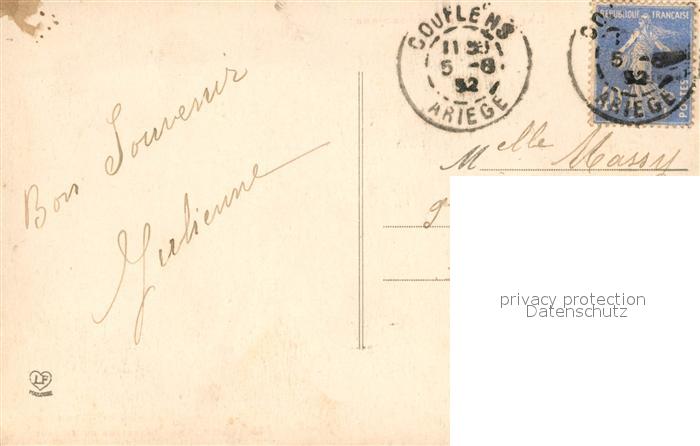 COUFLENS
11 30
5 -8
32
ARIEGE
REPUBLIQUE FRANÇAISE
POSTES
ARIEGE
Bon Souvenir
Julienne
Melle Massy
privacy protection
Datenschutz
LF
TOULOUSE